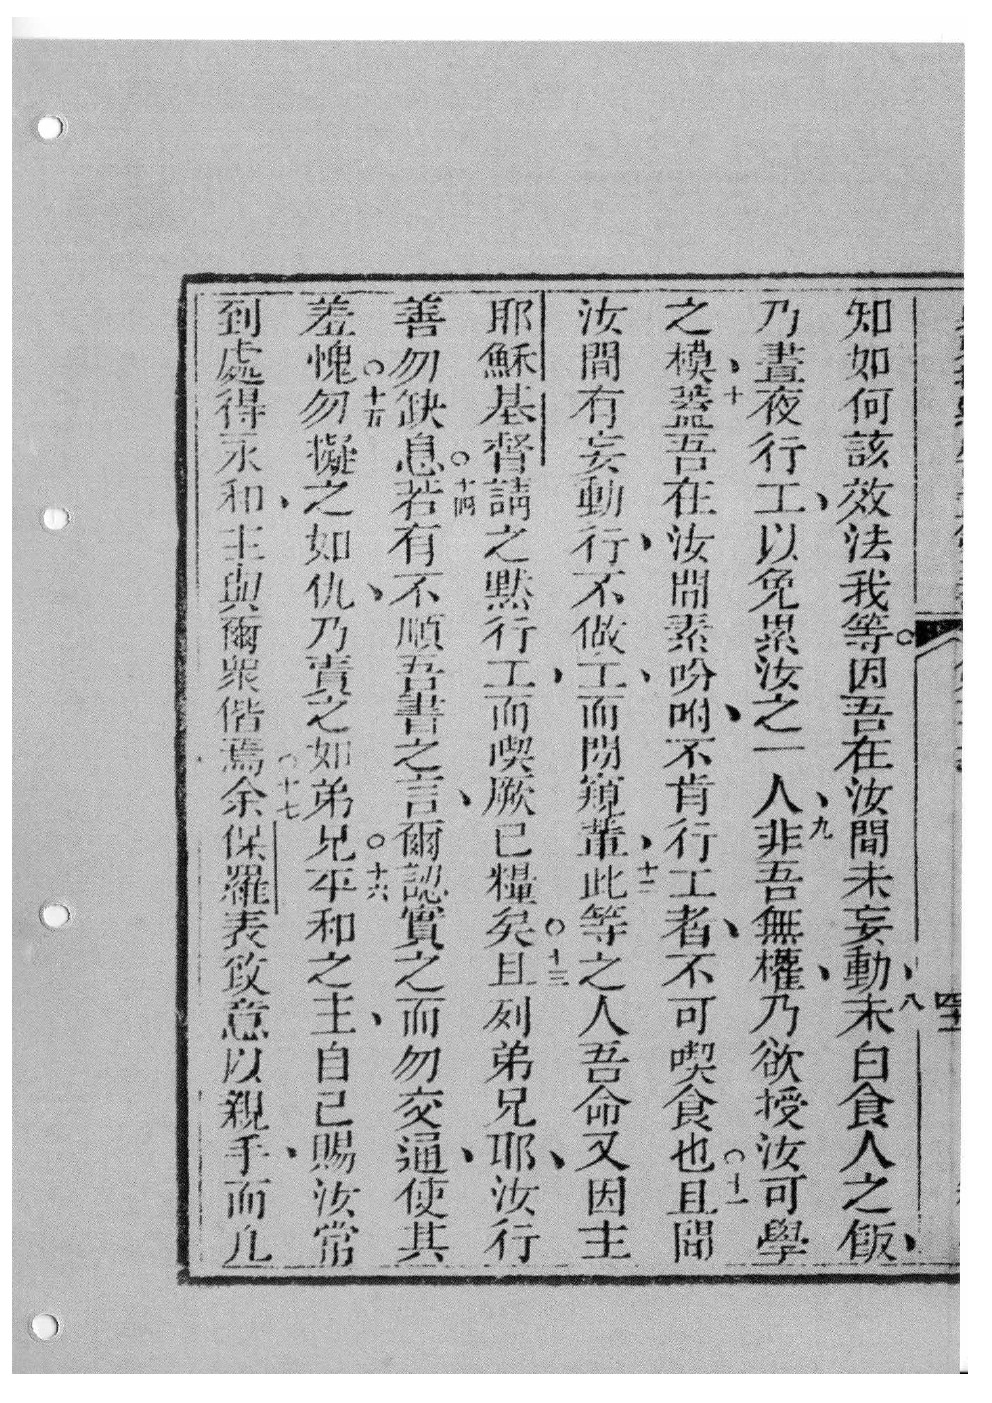 知如何該效法我等。因吾在汝間未妄動、八未白食人之飯、
乃晝夜行工、以免累汝之一人、九非吾無權、乃欲授汝可學
之模、十蓋吾在汝間素吩咐、不肯行工者、不可喫食也。十一且聞
汝間有妄動行、不做工、而閒窺輩、十二此等之人吾命又因主
耶穌基督請之默行工、而喫厥己糧矣。十三且列弟兄耶、汝行
善勿缺息。十四若有不順吾書之言、爾認實之而勿交通、使其
羞愧。十五勿擬之如仇、乃責之如弟兄。十六平和之主、自己賜汝常
到處得永和、主與爾眾偕焉。十七余保羅表致意以親手、而凡